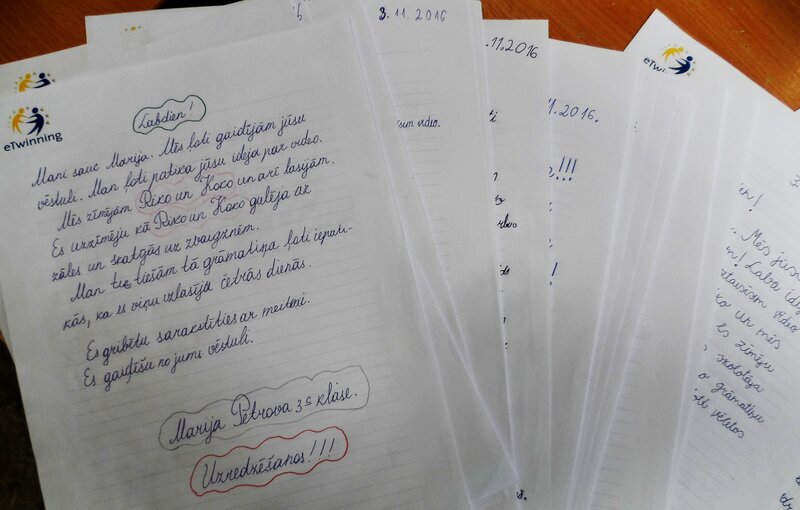 eTwinning
Labdien!
Mani sauc Marija. Mēs ļoti gaidījām jūsu
vēstuli. Man ļoti patika jūsu ideja par video.
Mēs zīmējām Riko un Koko un arī lasījām.
Es uzzīmēju kā Riko un Koko gulēja ar
zāles un skatgās uz zbaigznēm.
Man tie tiešām tā grāmatiņa ļoti iepati-
kās, ka es viņu izlasīja četrās dienās.
Es gribētu sarakstīties ar meiteni.
Es gaidīšu no jums vēstuli.
Marija Petrova 3c klase.
Uzredzēšanos!!!
3.11.2016
video.
.11.2016
11.2016.
!!!
!
eTwi
Mēs jūsu
Laba
video
un mēs
Es zīmēju
skolotāja
grāmatiņu
vēlētos